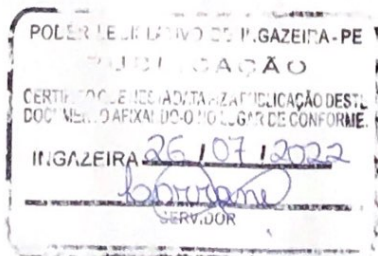 PODER LEGISLATIVO DE INGAZEIRA-PE
PUBLICAÇÃO
CERTIFICO QUE NESTA DATA FIZ A PUBLICAÇÃO DESTE
DOCUMENTO AFIXANDO-O NO LUGAR DE CONFORME.
INGAZEIRA 26 / 07 / 2022
SERVIDOR